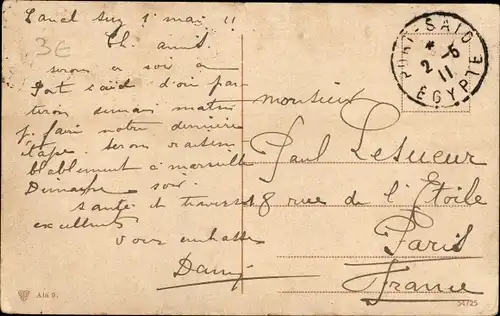 Canal Suez 1 mai !!
3E
Ch. amis.
serons ce soir a
Port Said d'où par-
tirons demain matin
p. faire notre dernière
étape. Serons vraisem
blablement à Marseille
Dimanche soir.
Santé et traversée
excellentes
Vous embrasse
PORT SAID
2 -5
11
EGYPTE
Monsieur
Paul Lesueur
8 rue de l'Etoile
Paris
France
Ala 9.
54725